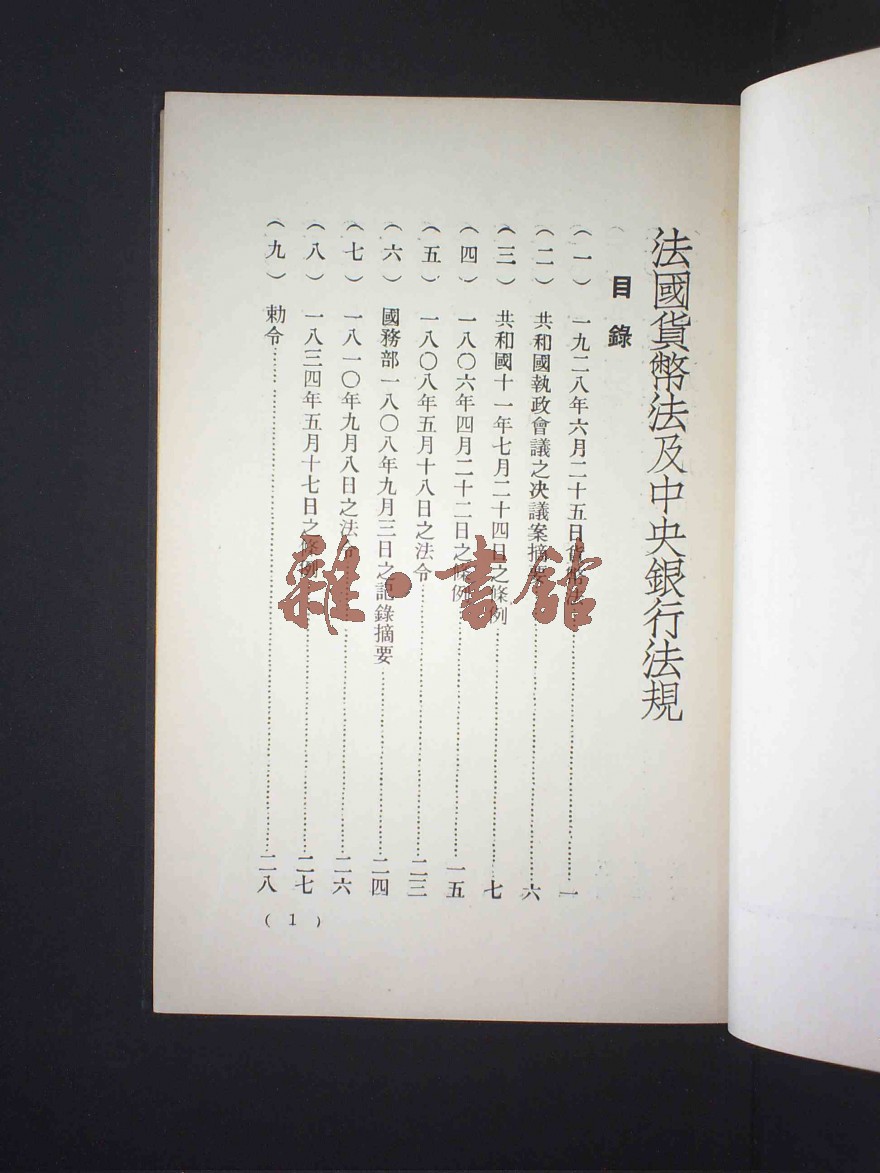 法國貨幣法及中央銀行法規
目錄
(一) 一九二八年六月二十五日貨幣法…………一
(二) 共和國執政會議之决議案摘要…………六
(三) 共和國十一年七月二十四日之條例…………七
(四) 一八〇六年四月二十二日之條例…………一五
(五) 一八〇八年五月十八日之法令…………二三
(六) 國務部一八〇八年九月三日之記錄摘要…………二四
(七) 一八一〇年九月八日之法令…………二六
(八) 一八三四年五月十七日之條例…………二七
(九) 勅令…………二八
(1)
雜·書館